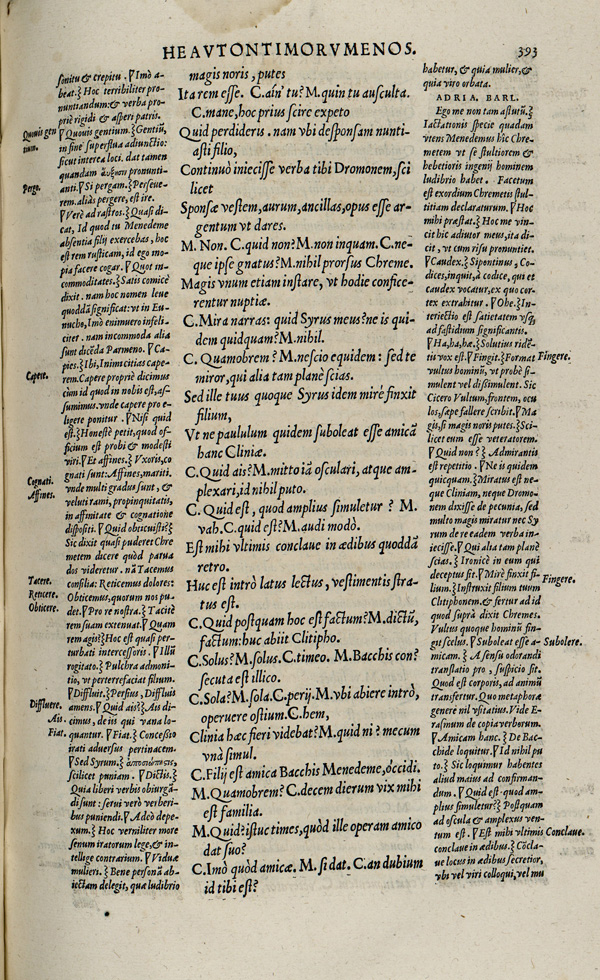 HEAVTONTIMORVMENOS.
393
sonitu & crepitu. ¶Imò a-
beat.⁊ Hoc terribiliter pro-
nuntiandum: & verba pro-
priè rigidi & asperi patris.
¶Quouis gentium.⁊ Gentiũ,
in fine superflua adiunctio:
sicut interea loci. dat tamen
quandam αὔξησιν pronunti-
anti. ¶Si pergam.⁊ Perseue-
rem. aliàs pergere, est ire.
¶Verè ad rastros.⁊ Quasi di-
cat, Id quod tu Menedeme
absentia filij exercebas, hoc
est rem rusticam, id ego ino-
pia facere cogar. ¶Quot in-
commoditates.⁊ Satis comicè
dixit. nam hoc nomen leue
quoddã significat: vt in Eu-
nucho, Imò enimuero infeli-
citer. nam incommoda alia
sunt dicẽda Parmeno. ¶Ca-
pies.⁊ Ibi, Inimicitias cape-
rem. Capere propriè dicimus
cùm id quod in nobis est, as-
sumimus. vnde capere pro e-
ligere ponitur. ¶Nisi quid
est.⁊ Honestè petit, quod of-
ficium est probi & modesti
viri. ¶Et affines.⁊ Vxoris, co
gnati sunt: Affines, mariti.
vnde multi gradus sunt, &
veluti rami, propinquitatis,
in affinitate & cognatione
dispositi. ¶Quid obticuisti?⁊
Sic dixit quasi puderet Chre
metem dicere quòd parua
dos videretur. nã Tacemus
consilia: Reticemus dolores:
Obticemus, quorum nos pu-
det. ¶Pro re nostra.⁊ Tacitè
rem suam extenuat. ¶Quam
rem agis?⁊ Hoc est quasi per-
turbati intercessoris. ¶Illũ
rogitato.⁊ Pulchra admoni-
tio, vt perterrefaciat filium.
¶Diffluit.⁊ Persius, Diffluis
amens. ¶Quid ais?⁊ Ais di-
cimus, de iis qui vana lo-
quantur. ¶Fiat.⁊ Concessio
irati aduersus pertinacem.
¶Sed Syrum.⁊ ἀποσιώπησις,
scilicet puniam. ¶Dictis.⁊
Quia liberi verbis obiurgã-
di sunt: serui verò verberi-
bus puniendi. ¶Adeò depe-
xum.⁊ Hoc verniliter more
senum iratorum lege, & in-
tellige contrarium. ¶Viduæ
mulieri.⁊ Bene personã ab-
iectam delegit, quæ ludibrio
Quouis gen
tium.
Pergo.
Capere.
Cognati.
Affines.
Tacere.
Reticere.
Obticere.
Diffluere.
Ais.
Fiat.
magis noris, putes
Ita rem esse. C. ain' tu? M. quin tu ausculta.
C. mane, hoc prius scire expeto
Quid perdideris. nam vbi desponsam nunti-
asti filio,
Continuò iniecisse verba tibi Dromonem, sci
licet
Sponsæ vestem, aurum, ancillas, opus esse ar-
gentum vt dares.
M. Non. C. quid non? M. non inquam. C. ne-
que ipse gnatus? M. nihil prorsus Chreme.
Magis vnum etiam instare, vt hodie confice-
rentur nuptiæ.
C. Mira narras: quid Syrus meus? ne is qui-
dem quidquam? M. nihil.
C. Quamobrem? M. nescio equidem: sed te
miror, qui alia tam planè scias.
Sed ille tuus quoque Syrus idem mirè finxit
filium,
Vt ne paululum quidem suboleat esse amicã
hanc Cliniæ.
C. Quid ais? M. mitto iã osculari, atque am-
plexari, id nihil puto.
C. Quid est, quod amplius simuletur? M.
vah. C. quid est? M. audi modò.
Est mihi vltimis conclaue in ædibus quoddã
retro.
Huc est intrò latus lectus, vestimentis stra-
tus est.
C. Quid postquam hoc est factum? M. dictũ,
factum: huc abiit Clitipho.
C. Solus? M. solus. C. timeo. M. Bacchis con?
secuta est illico.
C. Sola? M. sola. C. perij. M. vbi abiere intrò,
operuere ostium. C. hem,
Clinia hæc fieri videbat? M. quid ni? mecum
vnà simul.
C. Filij est amica Bacchis Menedeme, occidi.
M. Quamobrem? C. decem dierum vix mihi
est familia.
M. Quid? istuc times, quòd ille operam amico
dat suo?
C. Imò quòd amicæ. M. si dat. C. an dubium
id tibi est?
habetur, & quia mulier, &
quia viro orbata.
ADRIA. BARL.
Ego me non tam astutũ.⁊
Iactationis specie quadam
vtens Menedemus hîc Chre-
metem vt se stultiorem &
hebetioris ingenij hominem
ludibrio habet. Facetum
est exordium Chremetis stul-
titiam declaraturum. ¶Hoc
mihi præstat.⁊ Hoc me vin-
cit hic adiutor meus, ita di-
cit, vt cum risu pronuntiet.
¶Caudex.⁊ Sipontinus, Co-
dices, inquit, à codice, qui et
caudex vocatur, ex quo cor-
tex extrahitur. ¶Ohe.⁊ In-
teriectio est satietatem vsq;
ad fastidium significantis.
¶Ha, ha, hæ.⁊ Solutius ridẽ-
tis vox est. ¶Fingit.⁊ Format
vultus hominũ, vt probè si-
mulent vel dissimulent. Sic
Cicero Vultum, frontem, ocu
los, sæpe fallere scribit. ¶Ma
gis, si magis noris putes.⁊ Sci-
licet eum esse veteratorem.
¶Quid non?⁊ Admirantis
est repetitio. ¶Ne is quidem
quicquam.⁊ Miratus est ne-
que Cliniam, neque Dromo-
nem dixisse de pecunia, sed
multo magis miratur nec Sy
rum de re eadem verba in-
iecisse. ¶Qui alia tam planè
scias.⁊ Ironicè in eum qui
deceptus sit. ¶Mirè finxit fi-
lium.⁊ Instruxit filium tuum
Clitiphonem. & fertur ad id
quod suprà dixit Chremes.
Vultus quoque hominũ fin-
git scelus. ¶Suboleat esse a-
micam.⁊ A sensu odorandi
translatio pro, suspicio sit.
Quod est corporis, ad animũ
transfertur. Quo metaphoræ
genere nil vsitatius. Vide E-
rasmum de copia verborum.
¶Amicam hanc.⁊ De Bac-
chide loquitur. ¶Id nihil pu
to.⁊ Sic loquimur habentes
aliud maius ad confirman-
dum. ¶Quid est quod am-
plius simuletur?⁊ Postquam
ad oscula & amplexus ven-
tum est. ¶Est mihi vltimis
conclaue in ædibus.⁊ Cõcla-
ue locus in ædibus secretior,
vbi vel viri colloqui, vel mu
Fingere.
Fingere.
Subolere.
Conclaue.